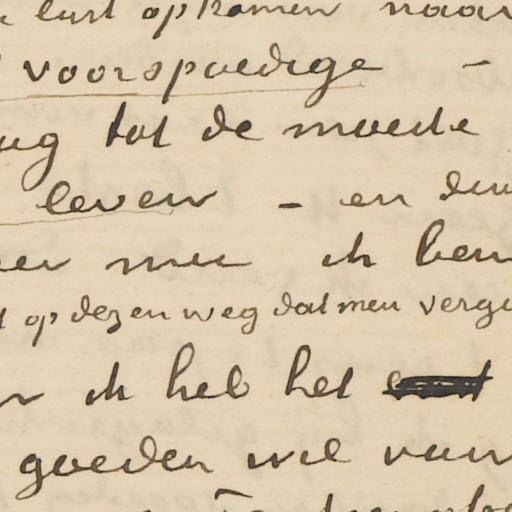 lust opkomen naar
voorspoedige –
tot de moede
leven – en
nu ik ben
op dezen weg dat men
ik heb het
goeden wil van